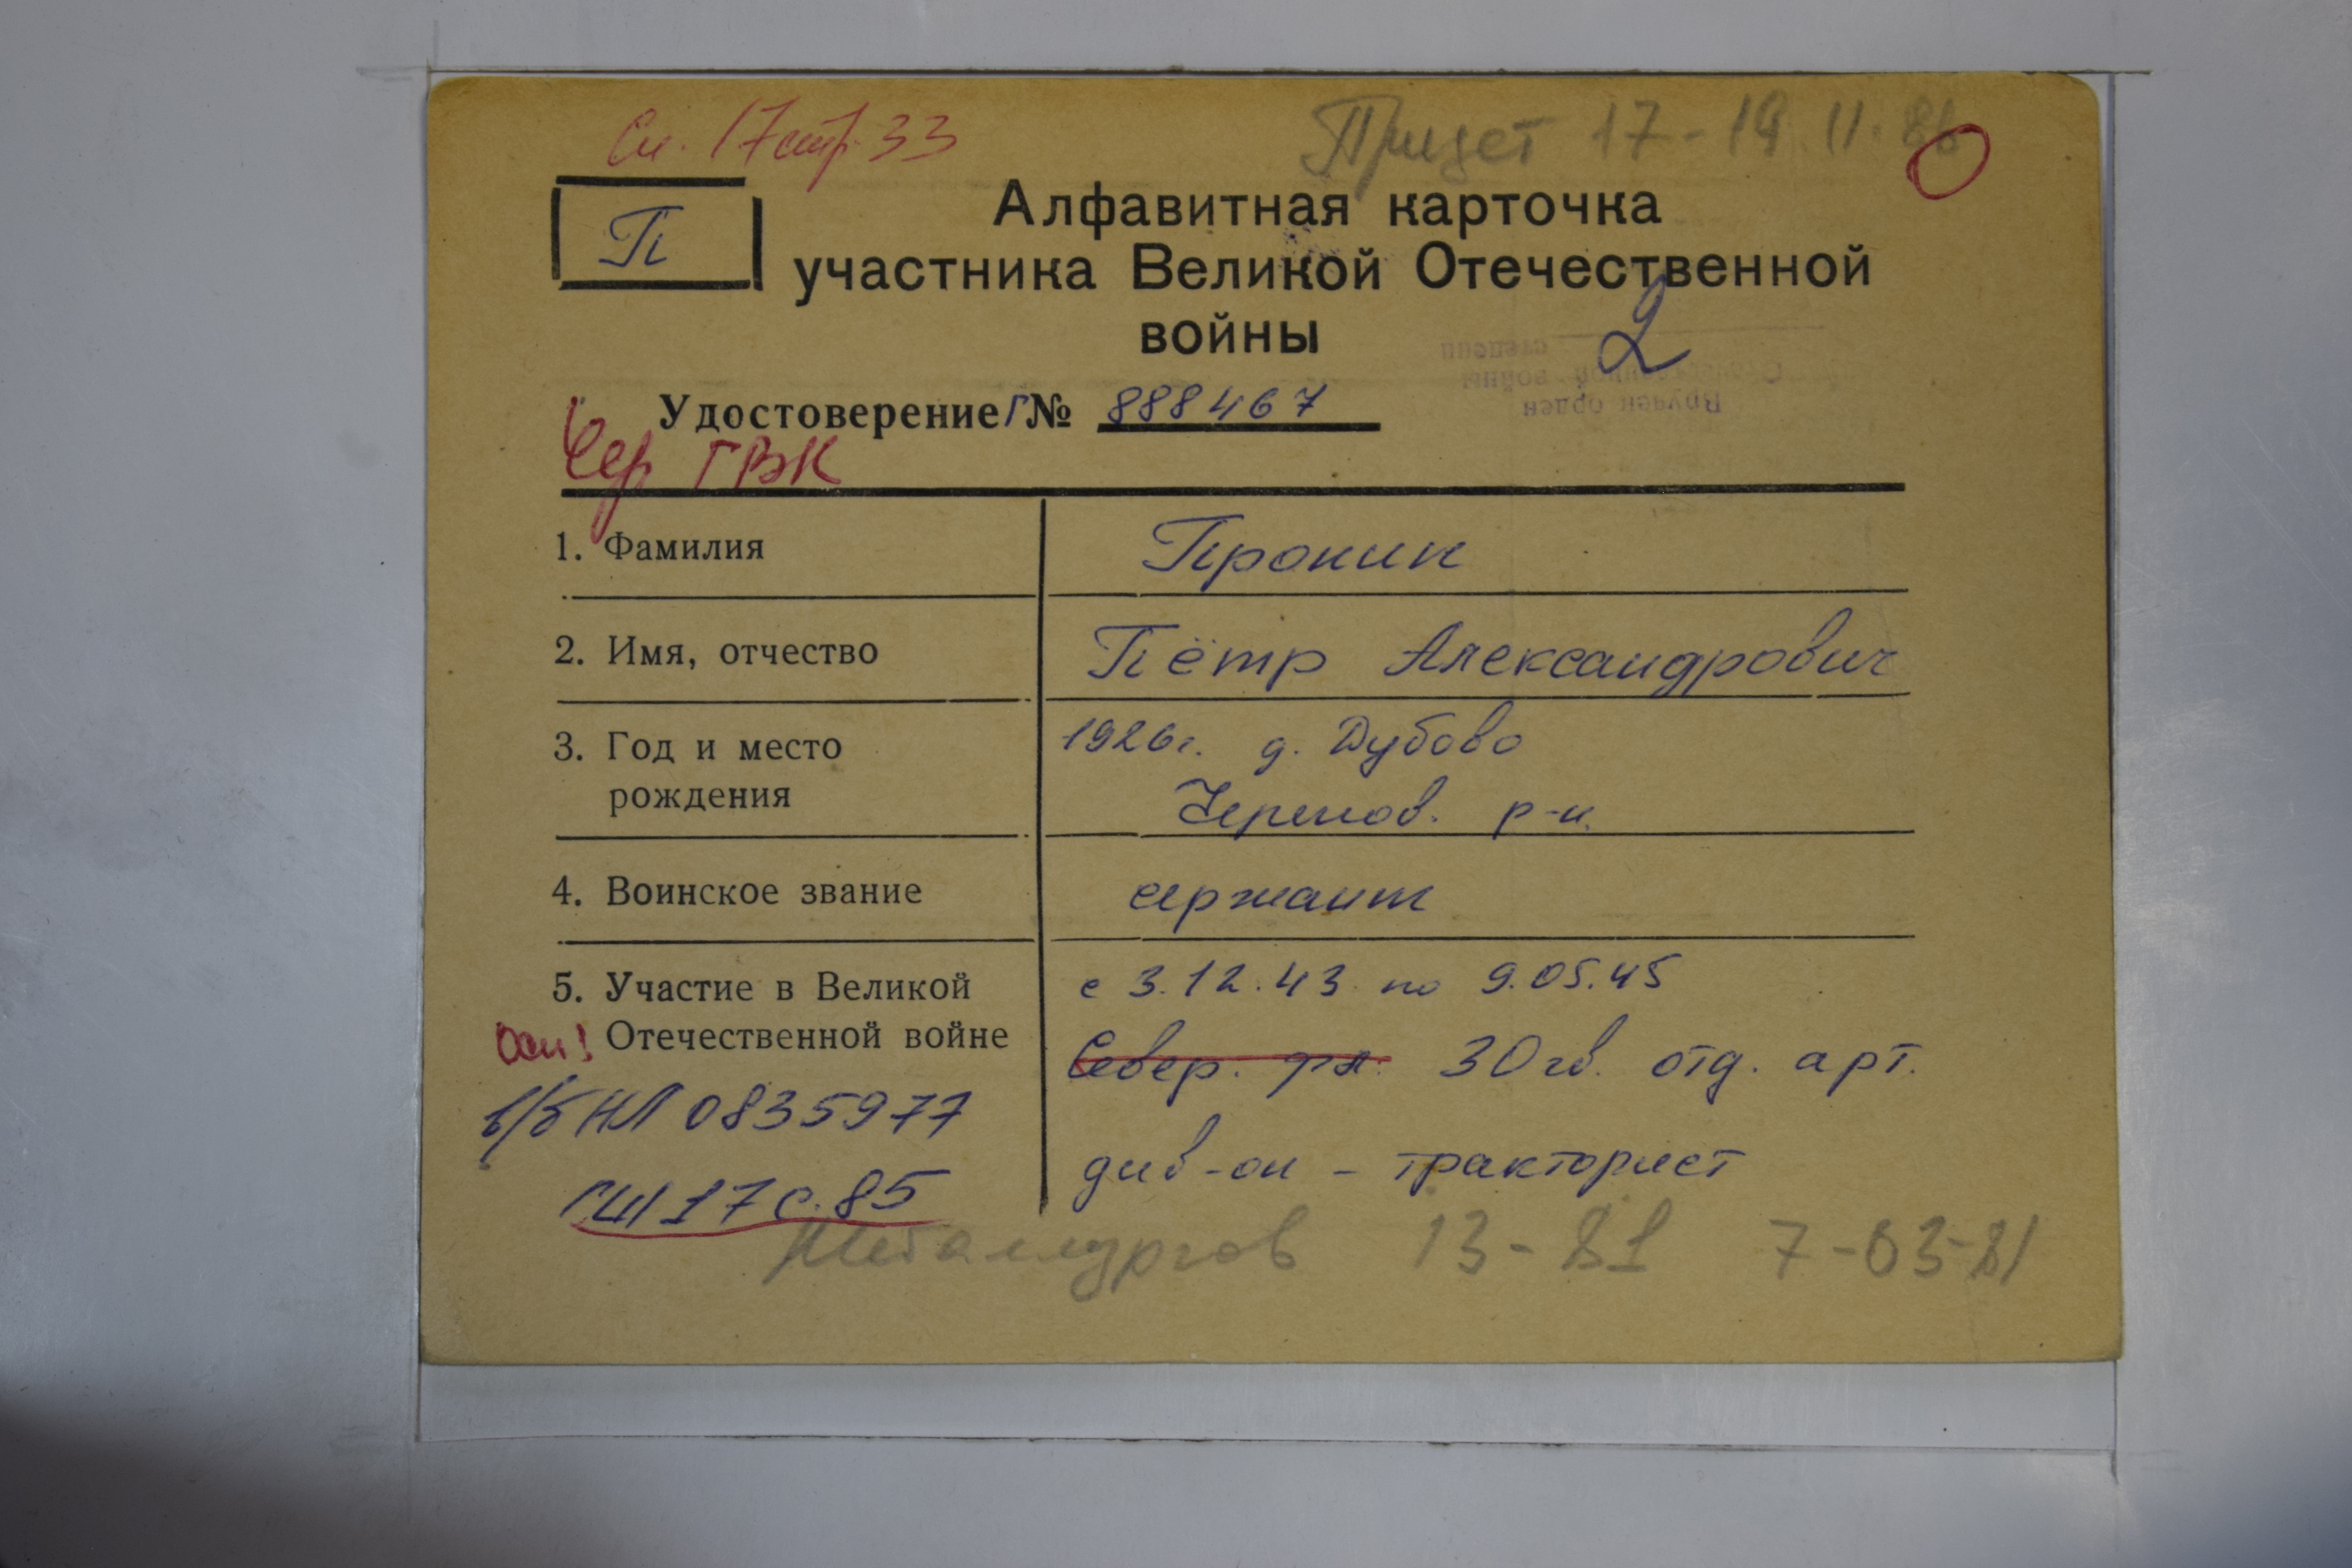 Сп. 17 стр. 33
Придет 17-19.11.86
П
Алфавитная карточка
участника Великой Отечественной
войны
2
Вручен орден
Отечественной войны
степени
Удостоверение Г № 888467
Чер ГВК
1. Фамилия Пронин
2. Имя, отчество Пётр Александрович
3. Год и место 1926г. д. Дубово
рождения Черепов. р-н.
4. Воинское звание сержант
5. Участие в Великой с 3.12.43 по 9.05.45
Отечественной войне Север. фл. 30 гв. отд. арт.
в/б НЛ 0835977
див-он - тракторист
ГШ 17 с. 85
Металлургов 13-81 7-03-81